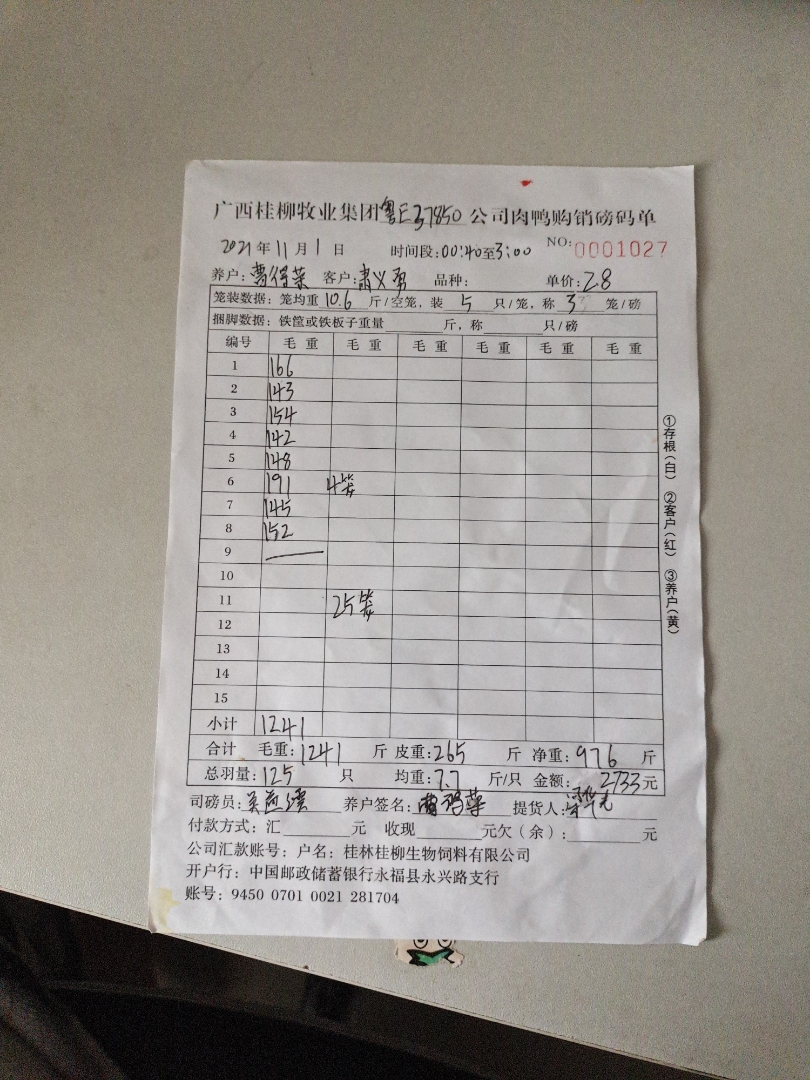 广西桂柳牧业集团粤E37850公司肉鸭购销磅码单
2021年11月1日 时间段:00:40至3:00 NO:0001027
养户:曹得荣 客户:肃义勇 品种: 单价:2.8
笼装数据:笼均重10.6斤/空笼,装5只/笼,称3笼/磅
捆脚数据:铁筐或铁板子重量 斤,称 只/磅
编号 毛重 毛重 毛重 毛重 毛重 毛重
1 166
2 143
3 154
4 142
5 148
6 191 4笼
7 145
8 152
9
10
11 25笼
12
13
14
15
小计 1241
合计 毛重:1241斤 皮重:265斤 净重:976斤
总羽量:125只 均重:7.7斤/只 金额:2733元
司磅员: 养户签名:曹得荣 提货人:
付款方式:汇 元 收现 元欠(余): 元
公司汇款账号:户名:桂林桂柳生物饲料有限公司
开户行:中国邮政储蓄银行永福县永兴路支行
账号:9450 0701 0021 281704
①存根(白) ②客户(红) ③养户(黄)